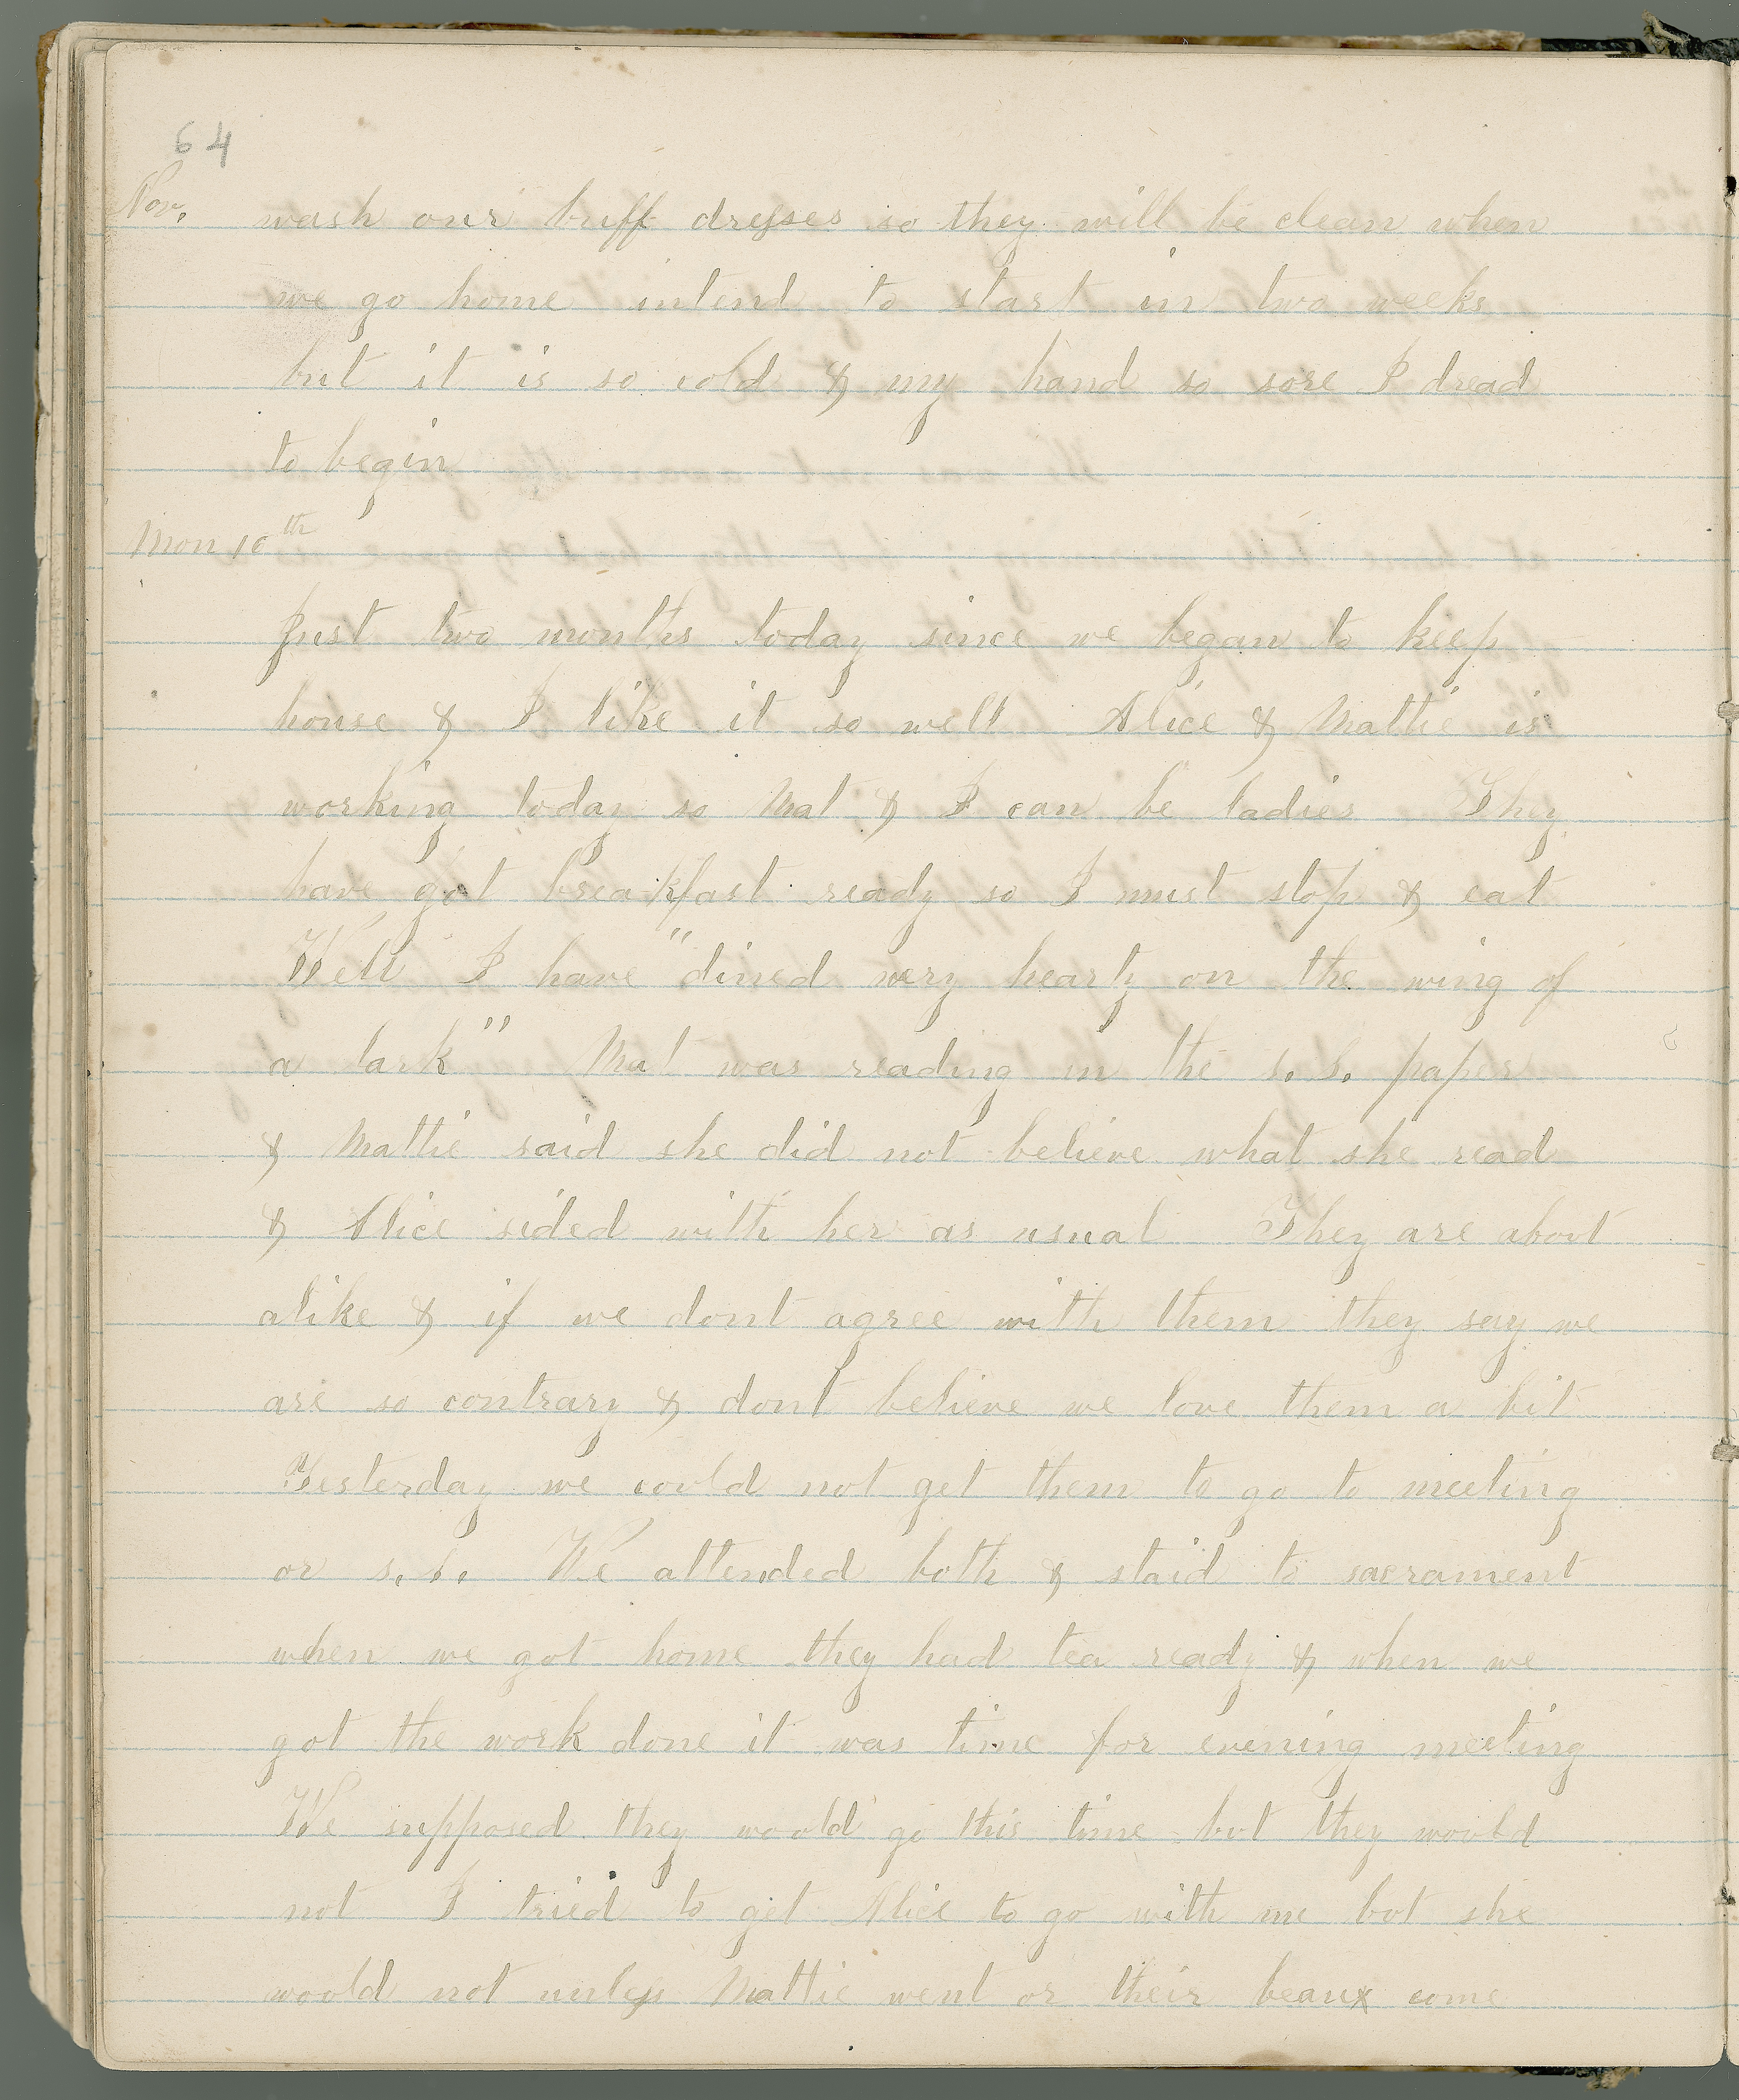 64
Nov. wash our buff dresses so they will be clean when
we go home intend to start in two weeks
but it is so cold & my hand so sore I dread
to begin
Mon 10th
Just two months today since we began to keep
house & I like it so well Alice & Mattie is
working today so Mat & I can be ladies They
have got breakfast ready so I must stop & eat
Well I have "dined very hearty on the wing of
a lark" Mat was reading in the s. s. paper
& Mattie said she did not believe what she read
& Alice sided with her as usual They are about
alike & if we dont agree with them they say we
are so contrary & dont believe we love them a bit
Yesterday we could not get them to go to meeting
or s. s. We attended both & staid to sacrament
when we got home they had tea ready & when we
got the work done it was time for evening meeting
We supposed they would go this time but they would
not I tried to get Alice to go with me but she
would not unless Mattie went or their beaux come